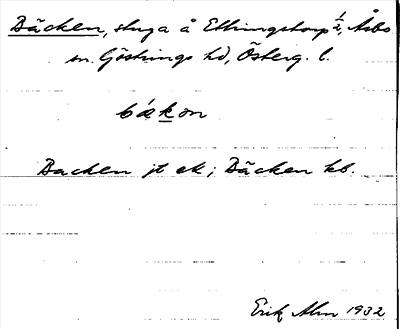 Bäcken, stuga å Ettingstorp 1/2, Åsbo
sn. Göstrings hd, Österg. l.
bǽkon
Backen jt ek; Bäcken kb.
Erik Alm 1932